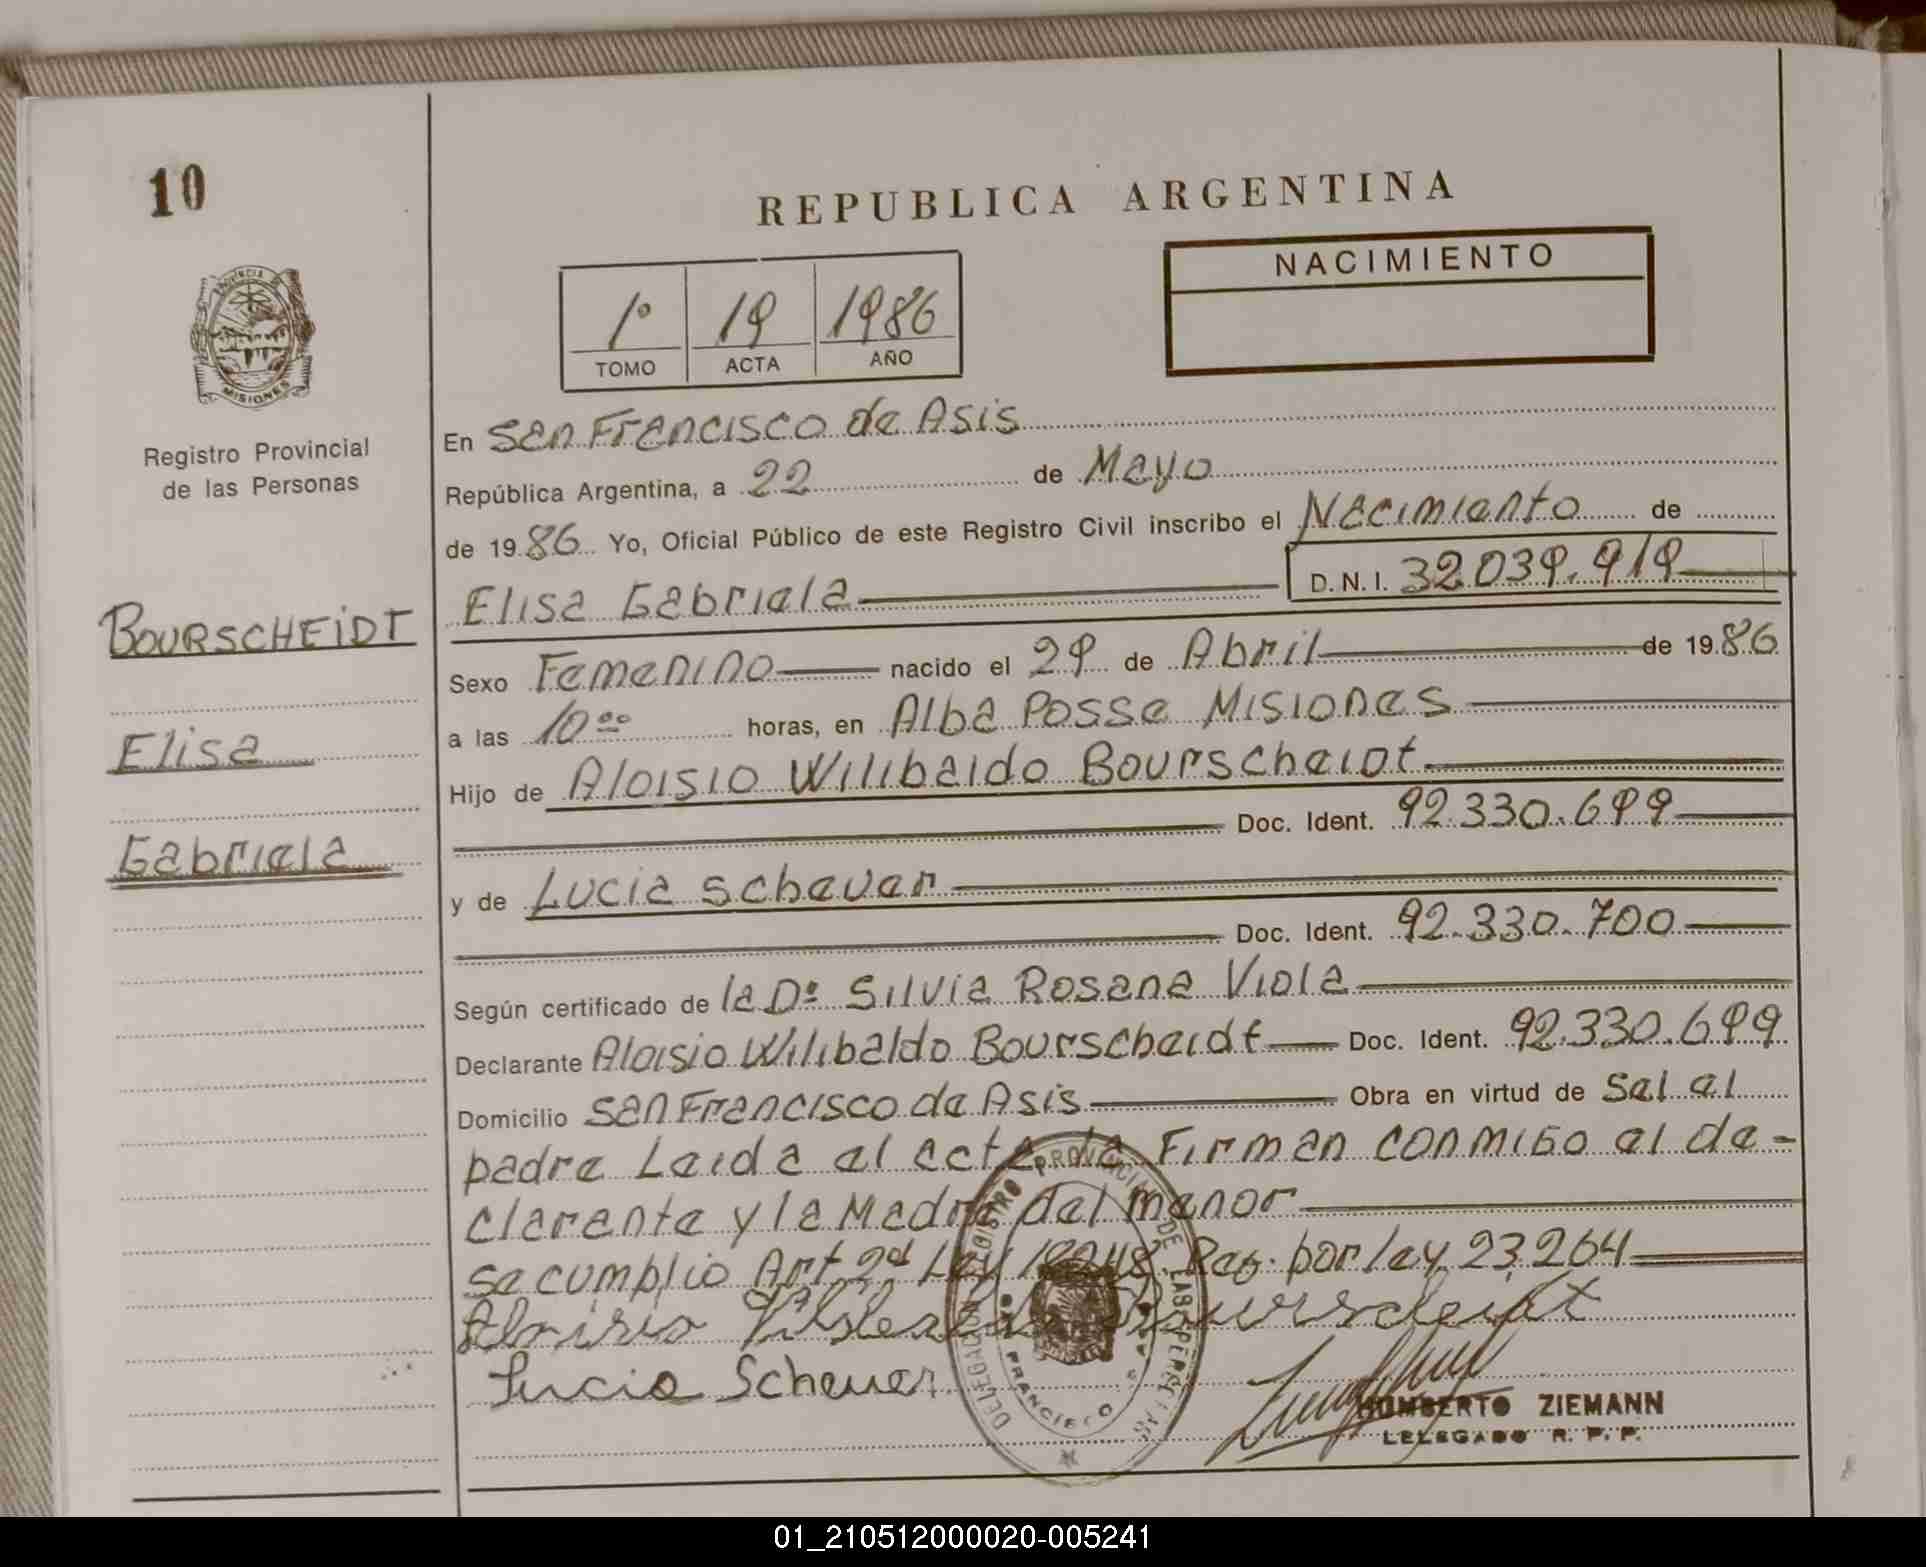 10
REPUBLICA ARGENTINA
NACIMIENTO
1º 19 1986
TOMO ACTA AÑO
PROVINCIA DE
MISIONES
Registro Provincial
de las Personas
BOURSCHEIDT
Elisa
Gabriela
En San Francisco de Asis
República Argentina, a 22 de Mayo
de 1986 Yo, Oficial Público de este Registro Civil inscribo el Nacimiento de
Elisa Gabriela D.N.I. 32.039.919
Sexo Femenino nacido el 29 de Abril de 1986
a las 10 ºº horas, en Alba Posse Misiones
Hijo de Aloisio Wilibaldo Bourscheidt
Doc. Ident. 92.330.699
y de Lucia Scheuer
Doc. Ident. 92.330.700
Según certificado de la Dª Silvia Rosana Viola
Declarante Aloisio Wilibaldo Bourscheidt Doc. Ident. 92.330.699
Domicilio San Francisco de Asis Obra en virtud de Sal al
padre Leida al acta la Firman conmigo el de-
clarante y la Madre del menor
se cumplio Art 2d Ley 18248 Reg. por ley 23.264
Bourscheidt
Lucia Scheuer
HUMBERTO ZIEMANN
DELEGADO R. P. P.
REGISTRO PROVINCIAL DE LAS PERSONAS
DELEGACION
FRANCISCO
01_210512000020-005241